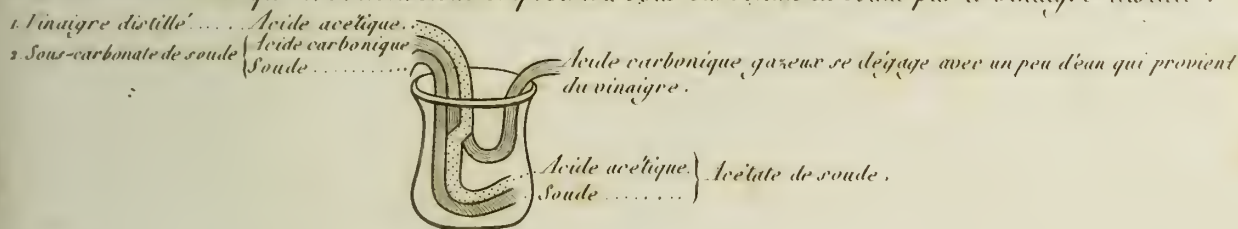 par le vinaigre distillé.
1. Vinaigre distillé ..... Acide acétique..
2. Sous-carbonate de soude { Acide carbonique
Soude ............
Acide carbonique gazeux se dégage avec un peu d'eau qui provient
du vinaigre.
Acide acétique. } Acétate de soude.
Soude ........